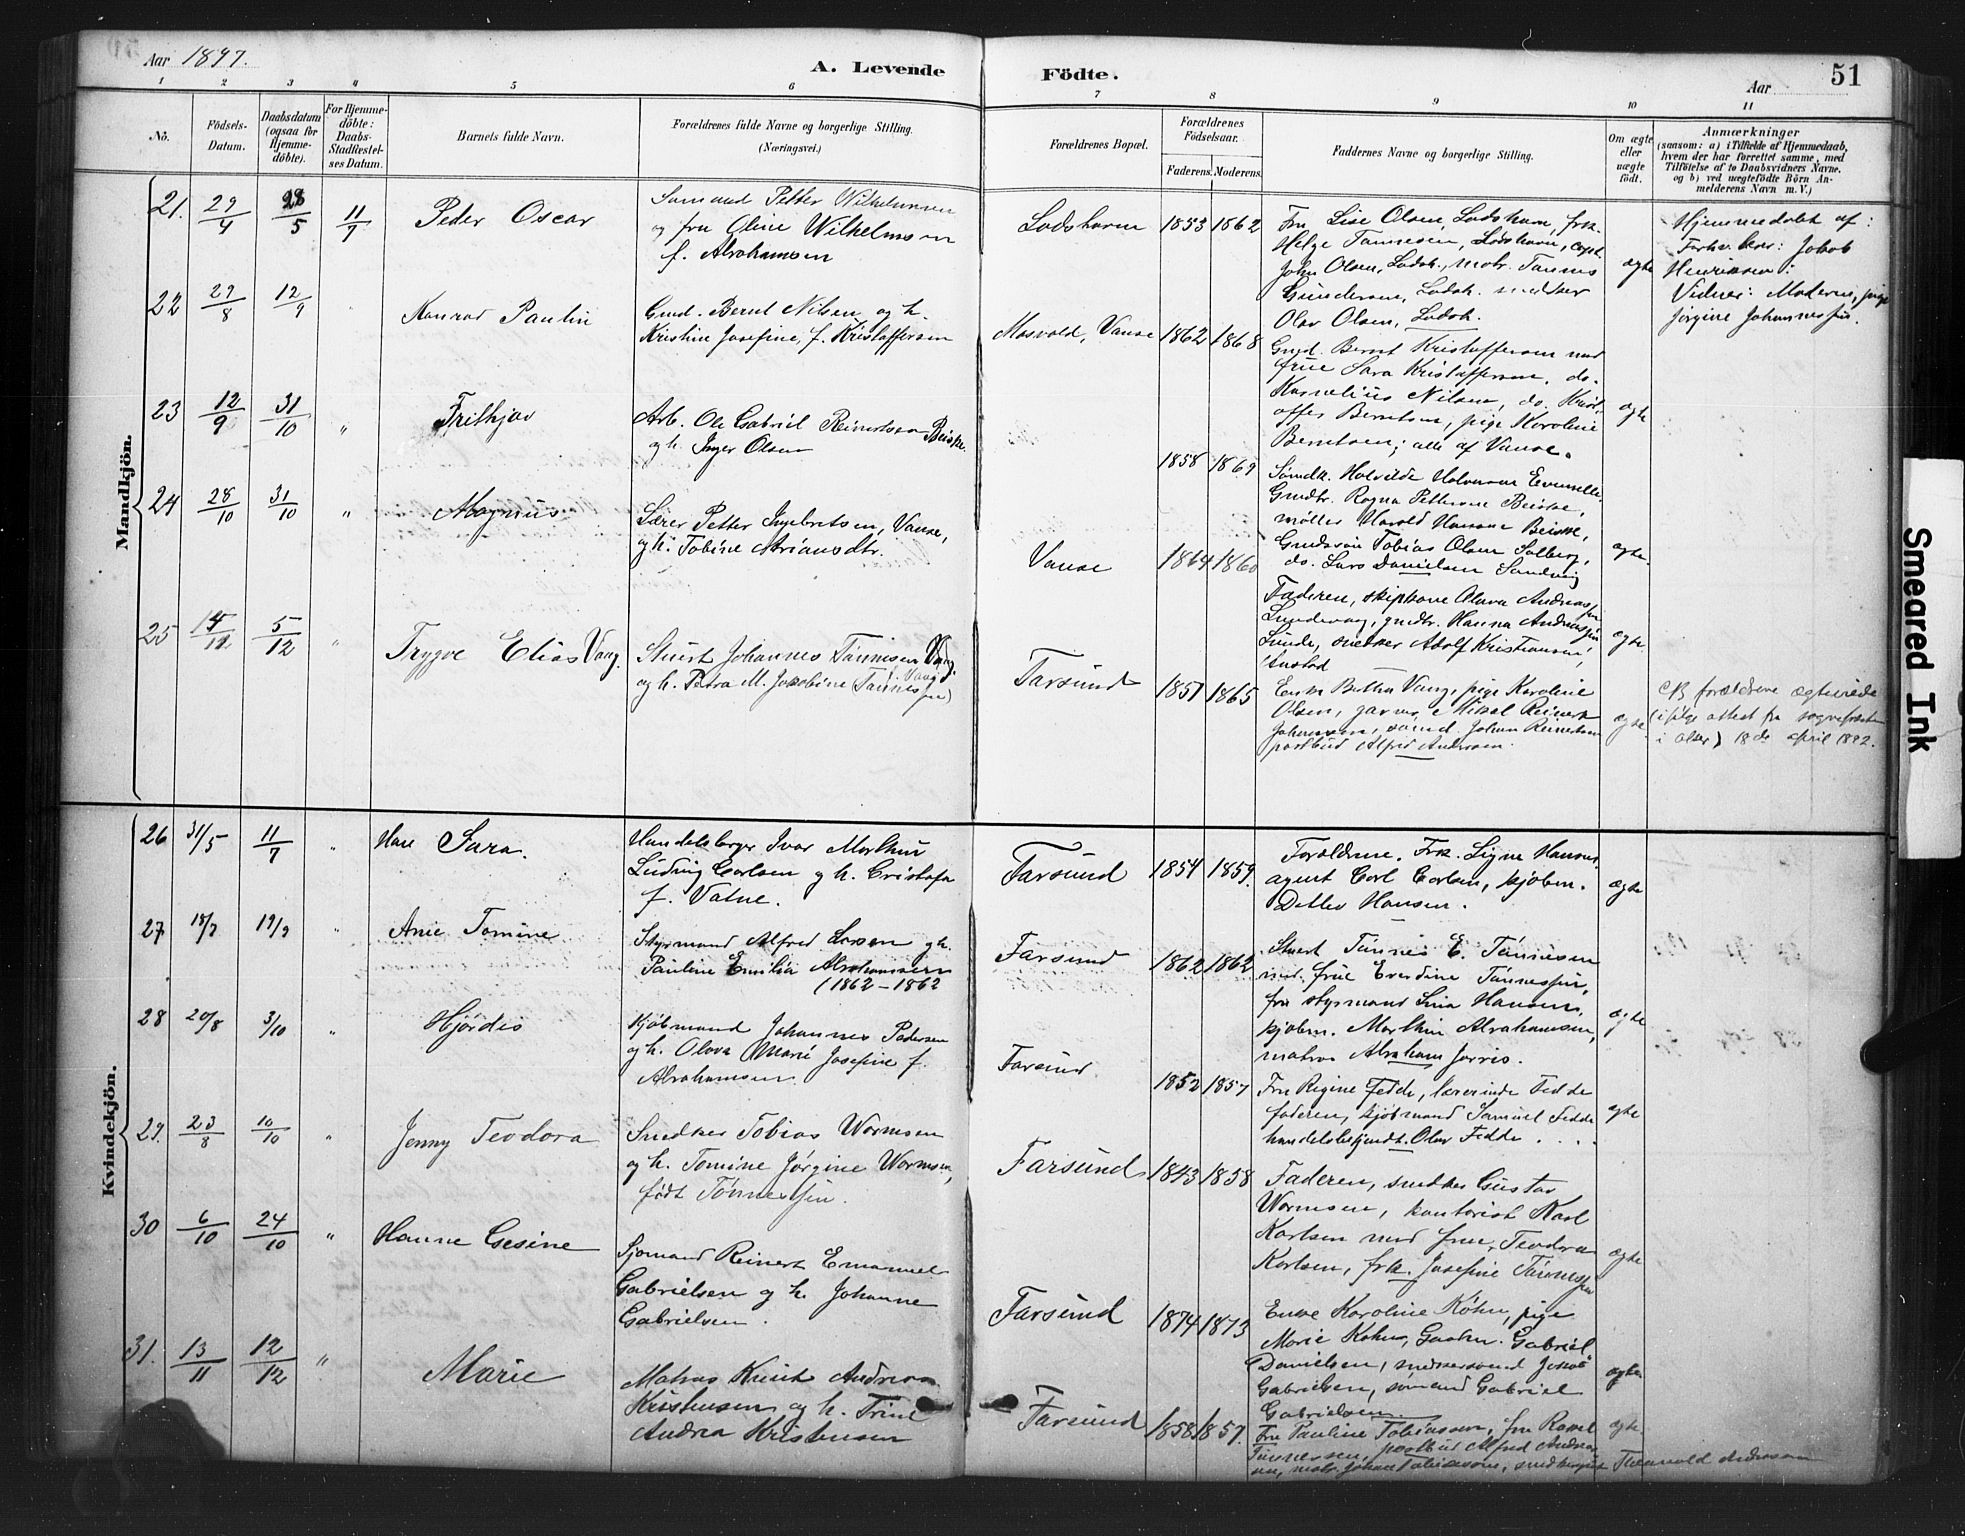 Aar 1897.
A. Levende
Födte.
Aar
51
1 2 3 4 5 6 7 8 9 10 11
No.
Födsels-Datum.
Daabsdatum (ogsaa for Hjemme-döbte).
For Hjemme-döbte: Daabs-Stadfestel-ses Datum.
Barnets fulde Navn.
Forældrenes fulde Navne og borgerlige Stilling.
(Næringsvei.)
Forældrenes Bopæl.
Forældrenes Födselsaar.
Faderens. Moderens.
Faddernes Navne og borgerlige Stilling.
Om ægte eller uægte födt.
Anmærkninger
(saasom: a) i Tilfælde af Hjemmedaab,
hvem der har forrettet samme, med
Tilföielse af to Daabsvidners Navne.
og b) ved uægtefödte Börn An-
melderens Navn m. V.)
Mandkjön.
21. 29/4 28/5 11/7 Peder Oscar
Sömand Petter Wilhelmsen
og fru Oline Wilhelmsen
f. Abrahamsen
Lodshavn 1853 1862
Fru Lise Olsen, Lodshavn, frk.
Helge Tønnesen, Lodshavn, capt.
John Olsen, Lodsh., matr. Tønnes
Gundersen, Lodsh. snedker
Olav Olsen, Lodsh.
ægte
Hjemmedøbt af:
Jakob
Henriksen:
Vidner: Moderen, pige
Jørgine Johannesjen.
22 27/8 12/9 " Konrad Paulin
Gmd. Bernt Nilsen og h.
Kristine Josefine, f. Kristoffersen
Mosvold, Vanse 1862 1868
Gmd. Bernt Kristoffersen med
frue Sara Kristoffersen, do.
Kornelius Nilsen, do. Krist-
offer Berntsen, pige Karoline
Berntsen; alle af Vanse.
ægte
23 12/9 31/10 " Frithjov
Arb. Ole Gabriel Reinertsen Beiske
og h. Inger Olsen
1858 1869
Gmdtr. Ragna Pettersen Beiske,
møller Harald Hansen Beiske,
Gmdsøn Tobias Olsen Solberg,
do. Lars Danielsen Sandvig
ægte.
24 28/10 31/10 " Magnus
Lærer Petter Ingebretsen, Vanse,
og h. Tobine Adriansdtr.
Vanse 1864 1860
Faderen, skipkone Olava Andreassen
Lundevaag, gmdtr. Hanna Andreassen
Lunde, snedker Adolf Kristiansen,
ægte.
25 14/11 5/12 " Trygve Elias Vang.
Stuert Johannes Tønnesen Vang.
og h. Petra M. Jakobine (Tønnesjen)
Vang
Farsund 1851 1865
Enke Bertha Vang, pige Karoline
Olsen, garver Mikal Reinert
Johansen, sømd. Johan Reinertsen
postbud Alfred Andersen.
ægte
NB forældrene ægteviede
(ifølge attest fra sognepræsten
i Oslo) 18de april 1892.
Kvindekjön.
26 31/5 11/7 " Sara.
Handelsborger Ivar Marthin
Ludvig Carlsen og h. Cristofa
f. Vatne.
Farsund 1854 1859.
Forældrene. Frk. Signe Hansen,
agent Carl Carlsen, kjøbm.
Detlev Hansen.
ægte
27 18/7 19/9 " Anie Tomine
Styrmand Alfred Larsen og h.
Pauline Emilia Abrahamsen
(1862 – 1862
Farsund 1862 1862
Stuert Tønnes E. Tønnesen
med frue Everdine Tønnesjen,
fru styrmand Lina Hansen,
kjøbm. Marthin Abrahamsen,
matros Abraham Jorris.
ægte
28 20/8 3/10 " Hjørdis
Kjøbmand Johannes Pedersen
og h. Olava Marie Josefine f.
Abrahamsen.
Farsund 1852 1857
Fru Regine Fedde, lærerinde Fedde
faderen, kjøbmand Samuel Fedde
handelsbetjendt. Olav Fedde ....
ægte
29. 23/8 10/10 " Jenny Teodora
Snedker Tobias Wormsen
og h. Tomine Jørgine Wormsen,
født Tønnesjen.
Farsund 1843 1858
Faderen, snedker Gustav
Wormsen, kontorist Karl
Karlsen med frue, Teodora
Karlsen, frk. Josefine Tønnesjen
ægte
30 6/10 24/10 " Hanne Gesine
Sjømand Reinert Emanuel
Gabrielsen og h. Johanne
Gabrielsen.
Farsund 1874 1873
Enke Karoline Køhn, pige
Marie Køhn, Gabriel
Danielsen, snedkersvend Jakob
Gabrielsen, sømand Gabriel
Gabrielsen
ægte
31. 13/11 12/12 " Marie
Matros Knut Andreas
Kristensen og h. Trine
Andrea Kristensen
Farsund 1858 1857.
Fru Pauline Tobiassen, fru Rakel
Tønnessen, postbud Alfred Andreas
matr. Johan Tobiassen, Thorvald Andreassen
ægte.
Smeared Ink